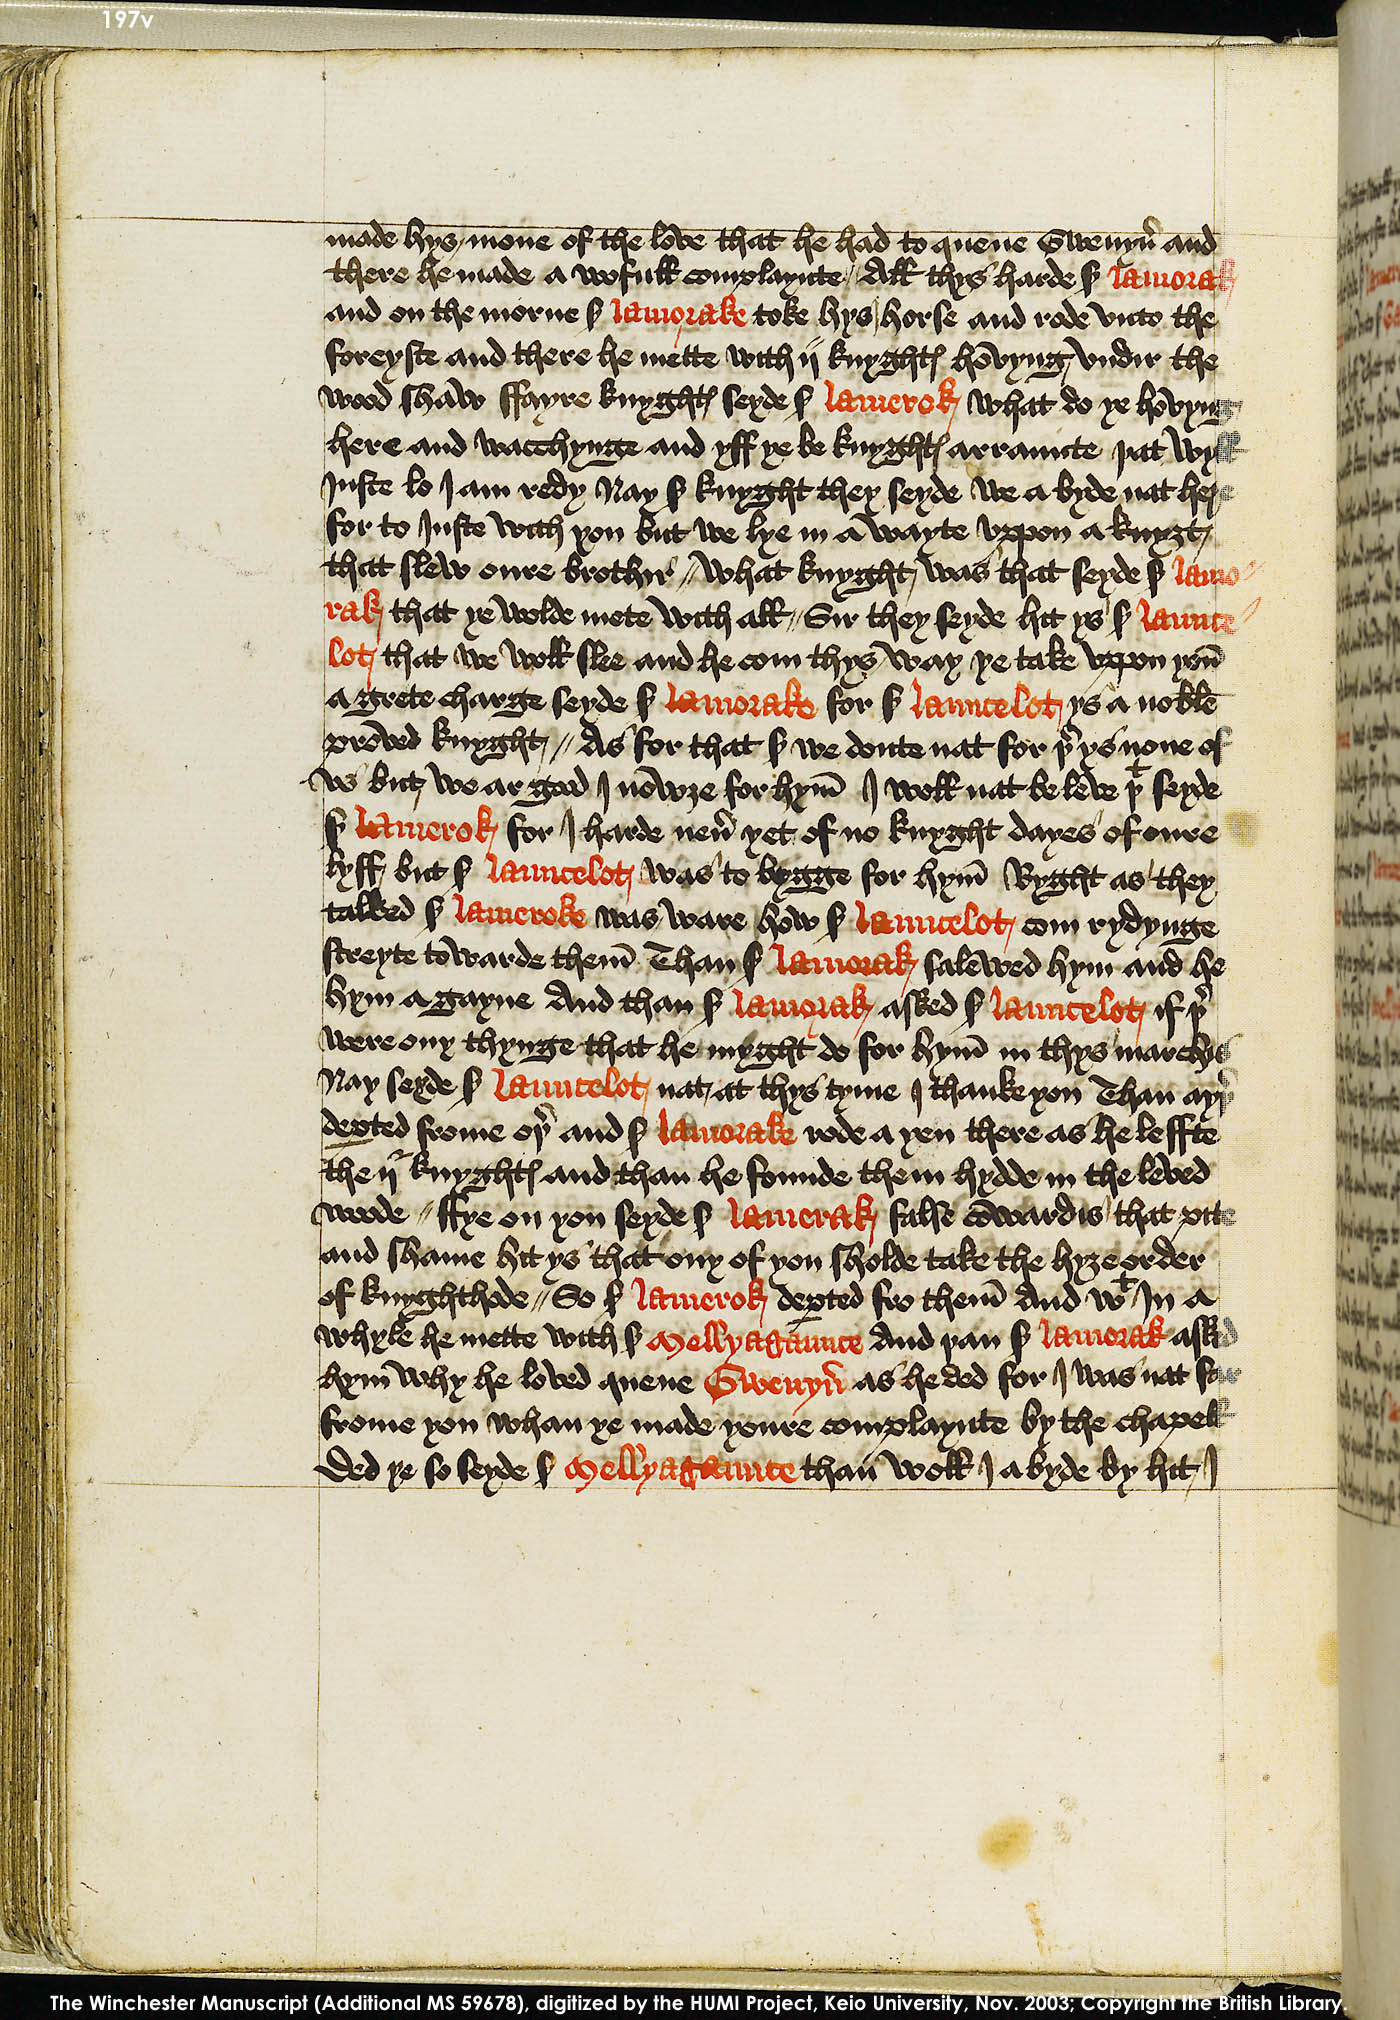 197v
made hys mone of the love that he had to quene Gwenyũ and
there he made a wofull complaynte // All thys harde ẜ lamorak
and on the morne ẜ lamorake toke hys horse and rode vnto the
foreyste and there he mette with ij knyghtꝭ hovyng vndir the
wood shaw ffayre knyghtꝭ seyde ẜ lamerok what do ye hovyng
here and wacchynge and yff ye be knyghtꝭ arraunte þat wyll
Juste lo I am redy Nay ẜ knyght they seyde we a byde nat here
for to Juste with you but we lye in a wayte vppon a knyȝt
that slew oure brothir // what knyght was that seyde ẜ lamo
rak that ye wolde mete with all // Sir they seyde hit ys ẜ launce
lot that we woll slee and he com thys way ye take vppon yow̃
a grete charge seyde ẜ lamorake for ẜ launcelot ys a noble
proved knyght // As for that ẜ we doute nat for þʳ ys none of
vs but we ar good I nowȝe for hym̃ I woll nat be leve þᵗ seyde
ẜ lamerok for I harde neũ yet of no knyght dayes of oure
lyff but ẜ launcelot was to bygge for hym̃ Ryght as they
talked ẜ lameroke was ware how ẜ launcelot com rydynge
streyte towarde them̃ Than ẜ lamorak salewed hym and he
hym a gayne And than ẜ lamorak asked ẜ launcelot if þʳ
were ony thynge that he myght do for hym̃ in thys marchys
Nay seyde ẜ launcelot nat at thys tyme I thanke you Than ayþʳ
deꝑted frome oþʳ and ẜ lamorake rode a yen there as he leffte
the ij knyghtꝭ and than he founde them hydde in the leved
woode // ffye on you seyde ẜ lamerak false cowardis that pite
and shame hit ys that ony of you sholde take the hyȝe order
of knyghthode // So ẜ lamerok deꝑted fro them̃ And wᵗ In a
whyle he mette with ẜ Mellyagaunce And þan ẜ lamorak asked
hym̃ why he loved quene Gwenyũ as he ded for I was nat far
frome you whan ye made youre complaynte by the chapell
Ded ye so seyde ẜ Mellyagaunce than woll I a byde by hit I
The Winchester Manuscript (Additional MS 59678), digitized by the HUMI Project, Keio University, Nov. 2003; Copyright the British Library.